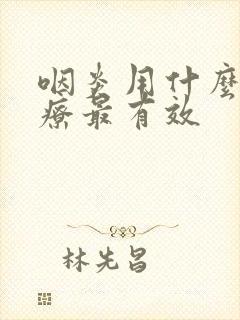 咽炎用什麼
療最有效
林先昌